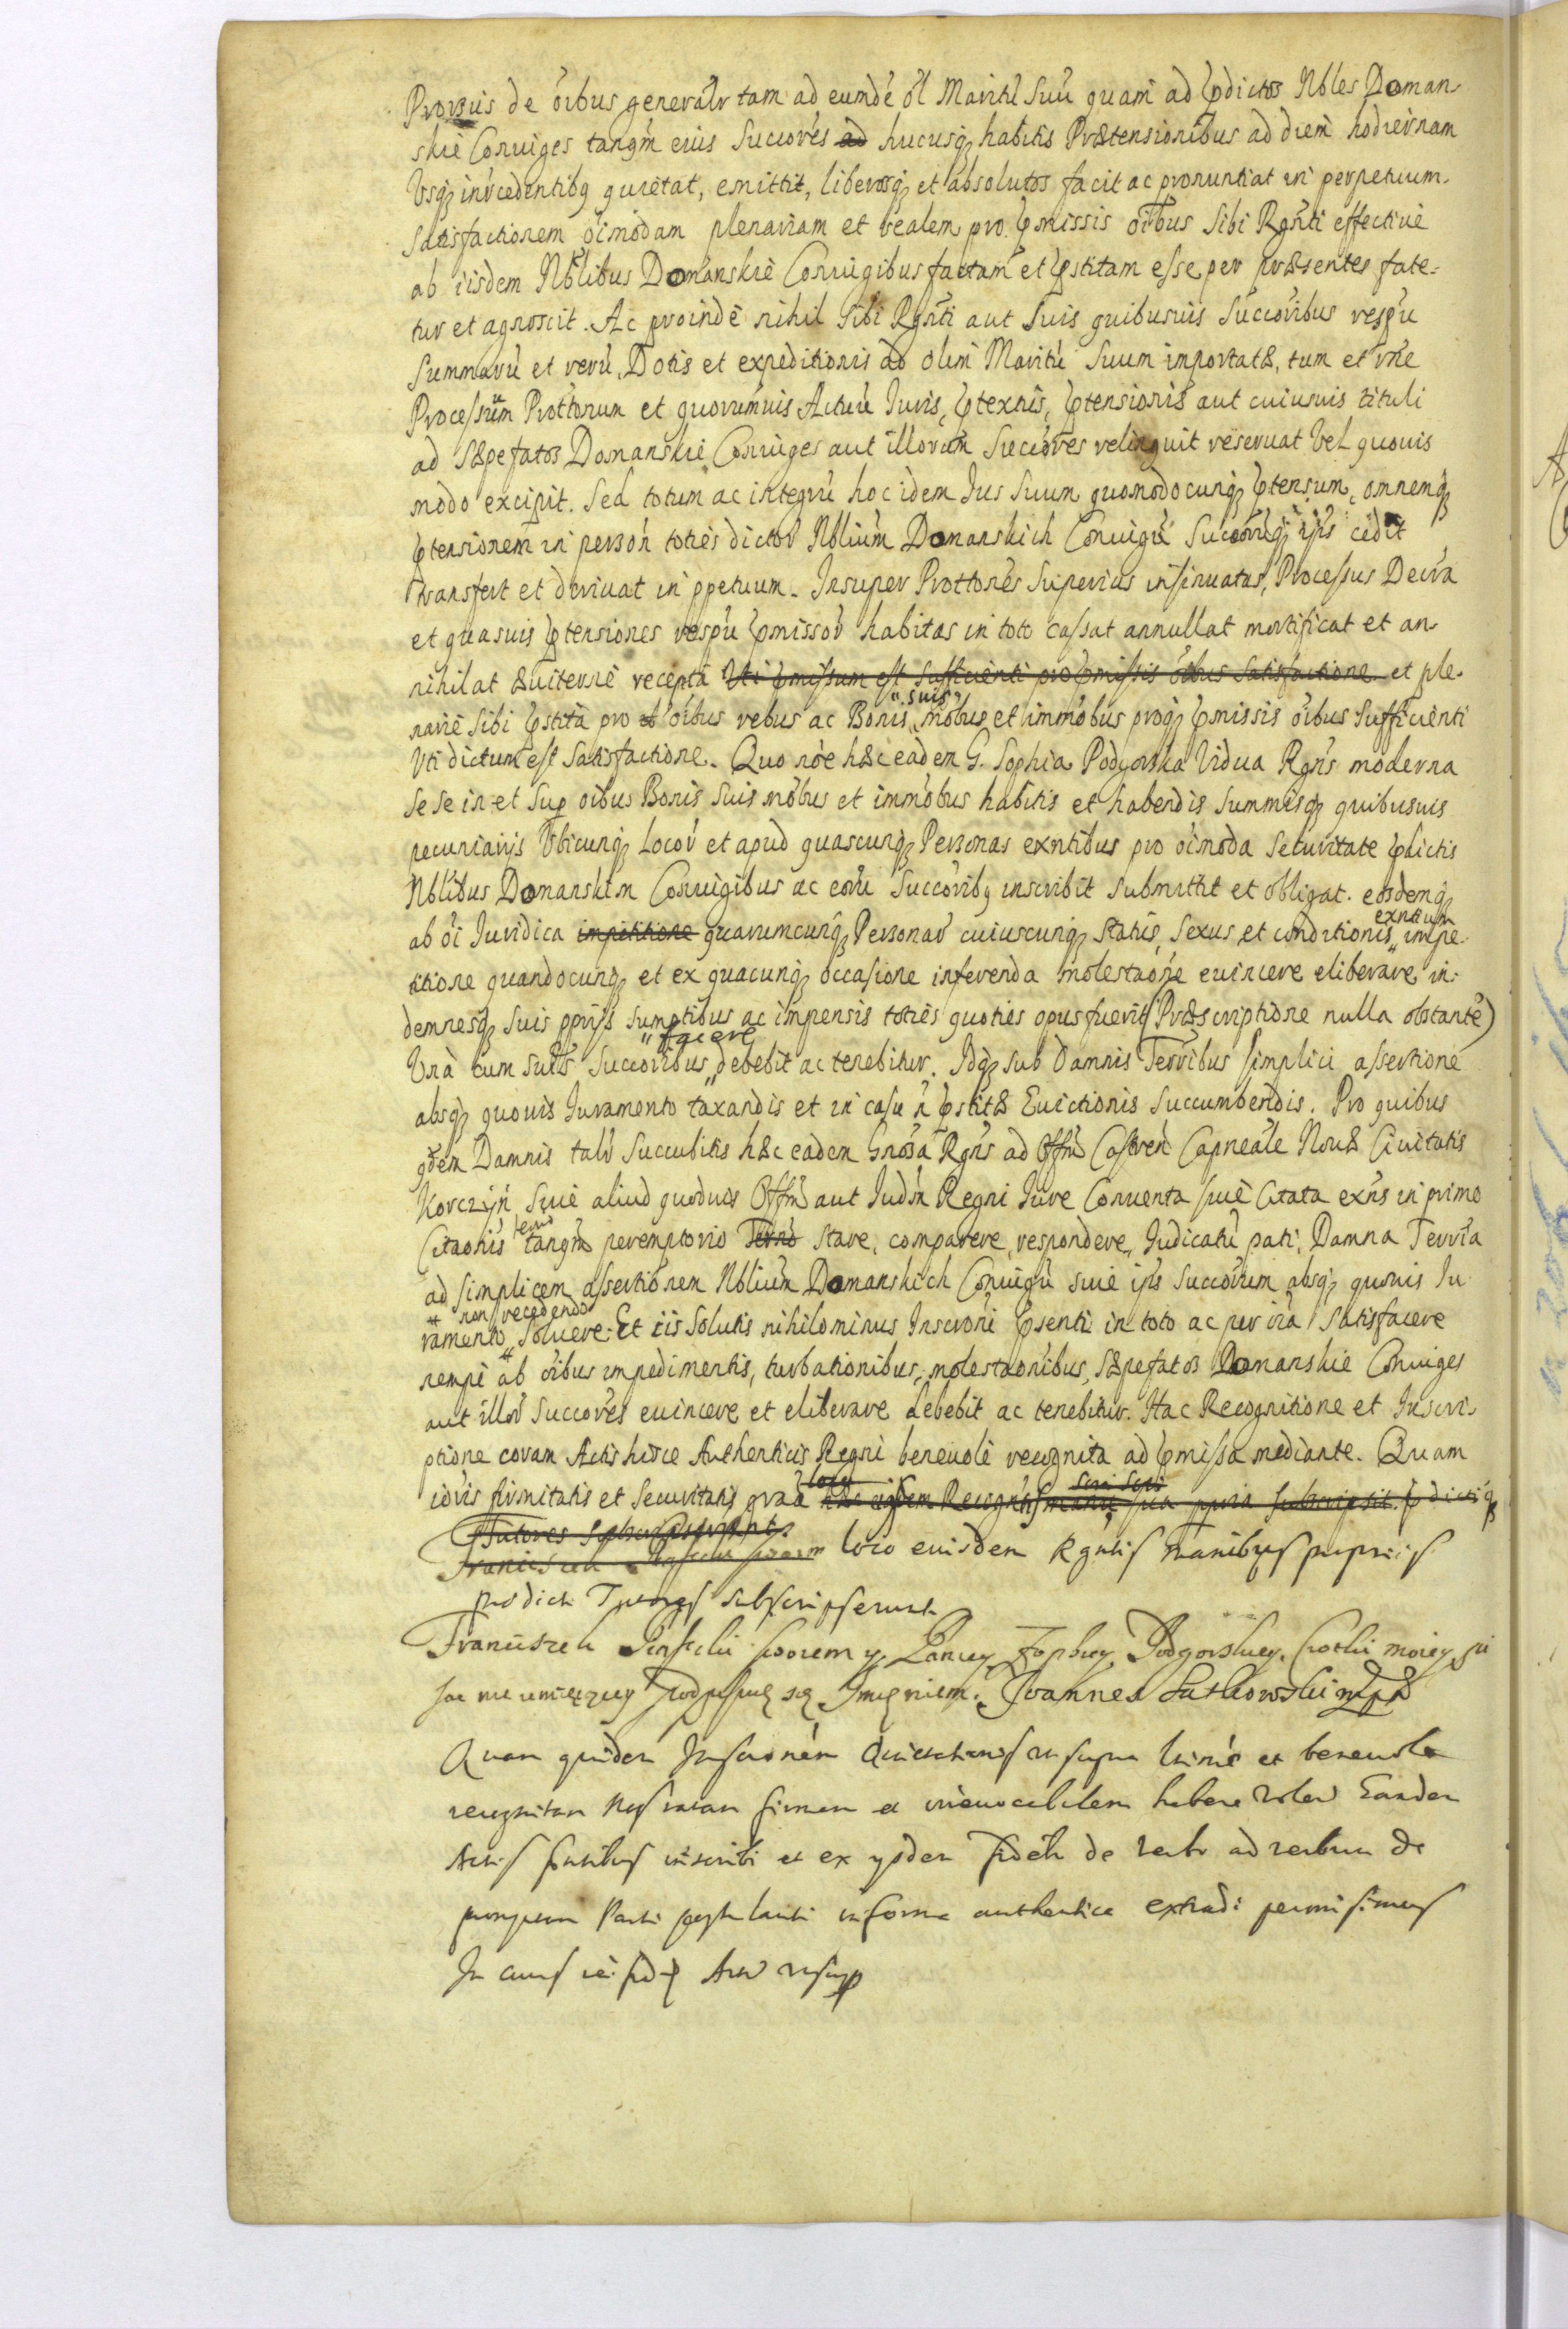 Prorsus de oibus generalr tam ad eunde ol Maritu Suu quam ad pdictos Nbles Doman-
skie Coniuges tanqm eius Succores ad hucusq habitis Prætensionibus ad diem hodiernam
Vsq intcedentibq quietat, emittit, liberosq et absolutos facit ac pronuntiat in perpetuum.
Satisfactionem oimodam plenariam et realem pro pmissis oibus Sibi Rgnti effectiue
ab iisdem Nblibus Domanskie Coniugibus factam et pstitam esse per præsentes fate-
tur et agnoscit. Ac proinde nihil Sibi Rgnti aut Suis quibusuis Succoribus respu
Summaru et reru, Dotis et expeditionis ad olim Maritu Suum importatæ, tum et rne
Processum Prottonum et quorumuis Actuu Iuris, ptextus, ptensionis aut cuiusuis tituli
ad Sæpefatos Domanskie Coniuges aut illorum Succores relinquit reseruat Vel quouis
modo excipit. Sed totum ac integru hoc idem Ius Suum quomodocunq ptensum, omnemq
ptensionem in person toties dictor Nblium Domanskich Coniugu Succoruq ipis cedit
transfert et deriuat in ppetuum. Insuper Prottones Superius insinuatas, Processus Decra
et quasuis ptensiones respu pmissor habitas in toto cassat annullat mortificat et an-
nihilat æuiterne recepta Uti pmissum est Sufficienti pro pmissis oibus Satisfactione et ple-
narie Sibi pstita pro oibus rebus ac Bonis "suis" mobus et immobus proq pmissis oibus Sufficienti
Vti dictum est Satisfactione. Quo noe hæc eadem G. Sophia Podgorska Vidua Rgns moderna
Se se in et Sup oibus Bonis Suis mobus et immobus habitis et habendis Summisq quibusuis
pecuniarijs Vbicunq Locor et apud quascunq Personas exntibus pro oimoda Securitate pdictis
Nblibus Domanskim Coniugibus ac eoru Succoribq inscribit Submittit et obligat. eosdemq
ab oi Iuridica impititione quarumcunq Personar cuiuscunq Status, Sexus et conditionis exntium impe-
titione quandocunq et ex quacunq occasione inferenda molestaone euincere eliberare in-
demnesq Suis pprijs Sumptibus ac impensis toties quoties opus fuerit (Præscriptione nulla obstante)
Vna cum Suis Succoribus "facere debebit ac tenebitur. Idq sub Damnis Terribus simplici assertione
absq quouis Iuramento taxandis et in casu n pstitæ Euictionis Succumbendis. Pro quibus
qdem Damnis talr Succubitis hæc eadem Gnosa Rgns ad Offm Castren Capneale Nouæ Ciuitatis
Korczyn Siue aliud quoduis Offm aut Iudm Regni Iure Conuenta siue Citata exns in primo
Citaonis termo tanqm peremptorio Termo Stare, comparere, respondere, Iudicatu pati, Damna Terrria
ad simplicem assertionem Nblium Domanskich Coniugu siue ips Succorum absq quouis Iu-
ramento non recedendo Soluere. Et iis Solutis nihilominus Inscroni psenti in toto ac per oia Satisfacere
nempe ab oibus impedimentis, turbationibus, molestaonibus, Sæpefatos Domanskie Coniuges
aut illor Succores euincere et eliberare debebit ac tenebitur. Hac Recognitione et Inscri-
ptione coram Actis hisce Authenticis Regni beneuole recognita ad pmissa mediante. Quam
idvis firmitatis et Securitatis graa loco
Tutores Subscripserunt.
loco eiusdem Rgntis manibus proprijs
prædicti Tutores subscripserunt
Franciszek Podgorskiey, Ciotki moiey
nie umieiącey Podpisuię się Imieniem. Joannes Sutkowski mpp
Quam quidem Inscronem Quietationis ut supra et beneuole
recognitam ratam firmam et irreuocabilem habere volen Eandem
Actis pntibus inscribi et ex ijsdem fideli de verbo ad verbum de
promptam Parti postulanti in forma authentica extradi permisimus
In cuius rei fid Act ut sup